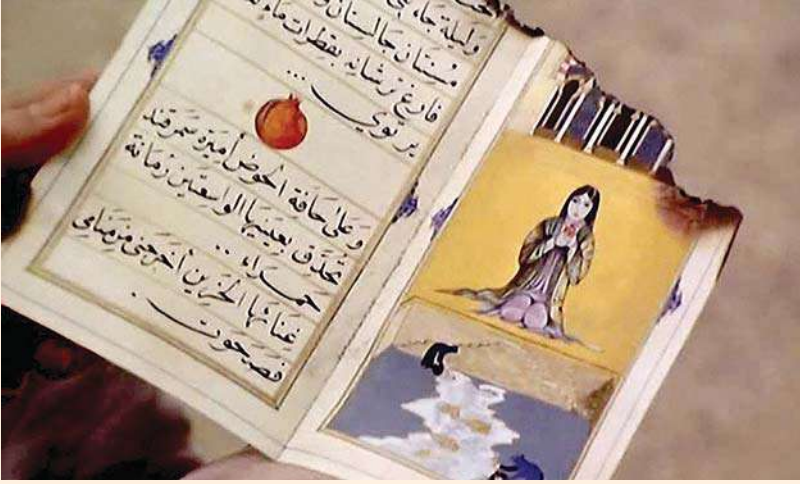 وليلة
جالستان
فارغ ترشانه بقطرات ماء
يرتوي ...
وعلى حافة الحوض أميرة سمرقند
تحدق بعينيها الواسعتين رمانة
حمراء ..
غنائها الحزين أخرجني من منامي
فصحوت .